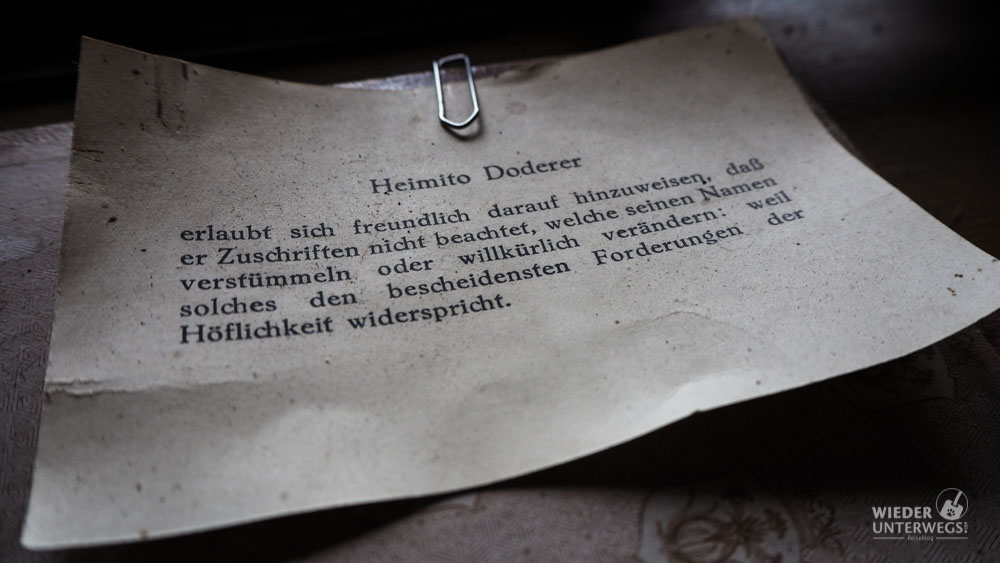 Heimito Doderer
erlaubt sich freundlich darauf hinzuweisen, daß
er Zuschriften nicht beachtet, welche seinen Namen
verstümmeln oder willkürlich verändern: weil
solches den bescheidensten Forderungen der
Höflichkeit widerspricht.
WIEDER
UNTERWEGS
Reiseblog